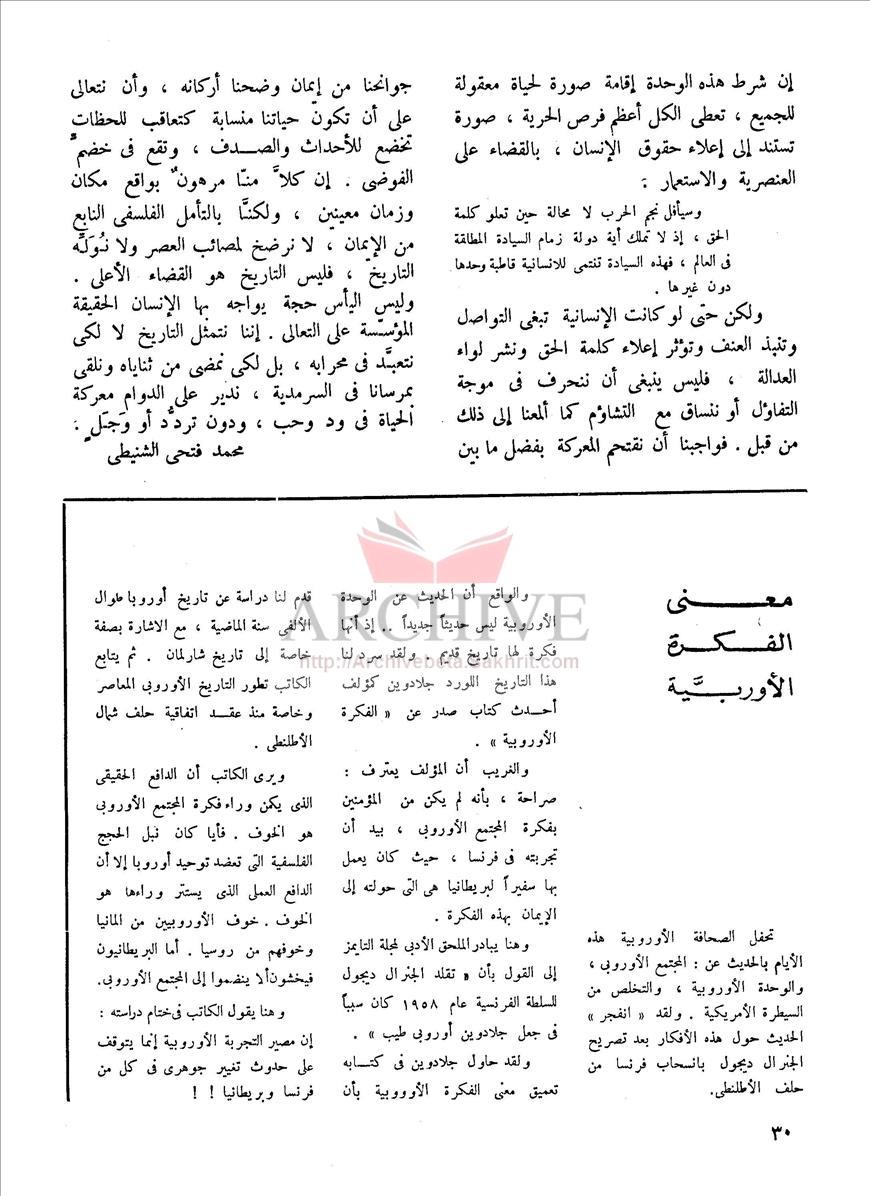 إن شرط هذه الوحدة إقامة صورة لحياة معقولة
للجميع ، تعطى الكل أعظم فرص الحرية ، صورة
تستند إلى إعلاء حقوق الإنسان ، بالقضاء على
العنصرية والاستعمار .
وسيأفل نجم الحرب لا محالة حين تعلو كلمة
الحق ، إذ لا تملك أية دولة زمام السيادة المطلقة
فى العالم ، فهذه السيادة تنتمى للانسانية قاطبة وحدها
دون غيرها .
ولكن حتى لو كانت الإنسانية تبغى التواصل
وتنبذ العنف وتؤثر إعلاء كلمة الحق ونشر لواء
العدالة ، فليس ينبغى أن ننحرف فى موجة
التفاؤل أو ننساق مع التشاؤم كما ألمعنا إلى ذلك
من قبل . فواجبنا أن نقتحم المعركة بفضل ما بين
جوانحنا من إيمان وضحنا أركانه ، وأن نتعالى
على أن تكون حياتنا منسابة كتعاقب للحظات
تخضع للأحداث والصـدف ، وتقع فى خضمٍّ
الفوضى . إن كلاًّ منـّا مرهونٌ بواقع مكان
وزمان معينين ، ولكنـَّا بالتأمل الفلسفى النابع
من الإيمان ، لا نرضخ لمصائب العصر ولا نـُوَلـِّه
التاريخ ، فليس التاريخ هو القضاء الأعلى .
وليس اليأس حجة يواجه بها الإنسان الحقيقة
المؤسّسة على التعالى . إننا نتمثل التاريخ لا لكى
نتعبـَّد فى محرابه ، بل لكى نمضى من ثناياه ونلقى
بمرسانا فى السرمدية ، ندير على الدوام معركة
الحياة فى ود وحب ، ودون تردُّد أو وَجـَلٍ .
محمد فتحى الشنيطى
معـــنى
الفـــكرة
الأوربـــيَّة
تحفل الصحافة الأوروبية هذه
الأيام بالحديث عن : المجتمع الأوروبى ،
والوحدة الأوروبية ، والتخلص من
السيطرة الأمريكية . ولقد « انفجر »
الحديث حول هذه الأفكار بعد تصريح
الجنرال ديجول بانسحاب فرنسا من
حلف الأطلنطى.
والواقع أن الحديث عن الوحدة
الأوروبية ليس حديثاً جديداً .. إذ أنها
فكرة لها تاريخ قديم . ولقد سرد لنا
هذا التاريخ اللورد جلادوين كمؤلف
أحـدث كتاب صدر عن « الفكرة
الأوروبية » .
والغريب أن المؤلف يعترف :
صراحة ، بأنه لم يكن من المؤمنين
بفكرة المجتمع الأوروبى ، بيد أن
تجربته فى فرنسا ، حيث كان يعمل
بها سفيراً لبريطانيا هى التى حولته إلى
الإيمان بهذه الفكرة .
وهنا يبادر الملحق الأدبى لمجلة التايمز
إلى القول بأن « تقلد الجنرال ديجول
للسلطة الفرنسية عام ١٩٥٨ كان سبباً
فى جعل جلادوين أوروبى طيب » .
ولقد حاول جلادوين فى كـتـابه
تعميق معنى الفكرة الأوووبية بأن
قدم لنا دراسة عن تاريخ أوروبا طوال
الألفى سنة الماضية ، مع الاشارة بصفة
خاصة إلى تاريخ شارلمان . ثم يتابع
الكاتب تطور التاريخ الأوروبى المعاصر
وخاصة منذ عقـد اتفاقية حلف شمال
الأطلنطى .
ويرى الكاتب أن الدافع الحقيقى
الذى يكمن وراء فكرة المجتمع الأوروبى
هو الخوف . فأيا كان نبل الحجج
الفلسفية التى تعضد توحيد أوروبا إلا أن
الدافع العملى الذى يستتر وراءها هو
الخوف . خوف الأوروبيين من المانيا
وخوفهم من روسيا . أما البريطانيون
فيخشون ألا ينضموا إلى المجتمع الأوروبى.
وهنا يقول الكاتب فى ختام دراسته :
إن مصير التجربة الأوروبية إنما يتوقف
على حدوث تغيير جوهرى فى كل من
فرنسا وبريطانيا ! !
ARCHIVE
http://Archivebeta.Sakhrit.com
٣٠